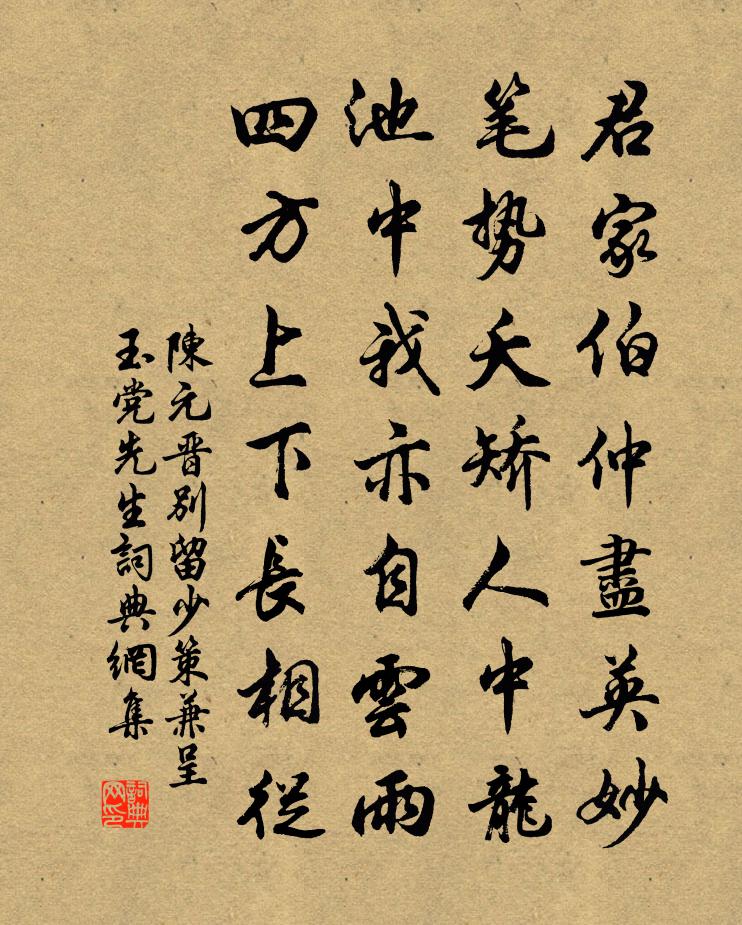 君家伯仲盡英妙
笔势夭矯人中龍
池中我亦自雲雨
四方上下長相從
陳元晋別留少策兼呈
玉党先生詞典網集
詞典网印